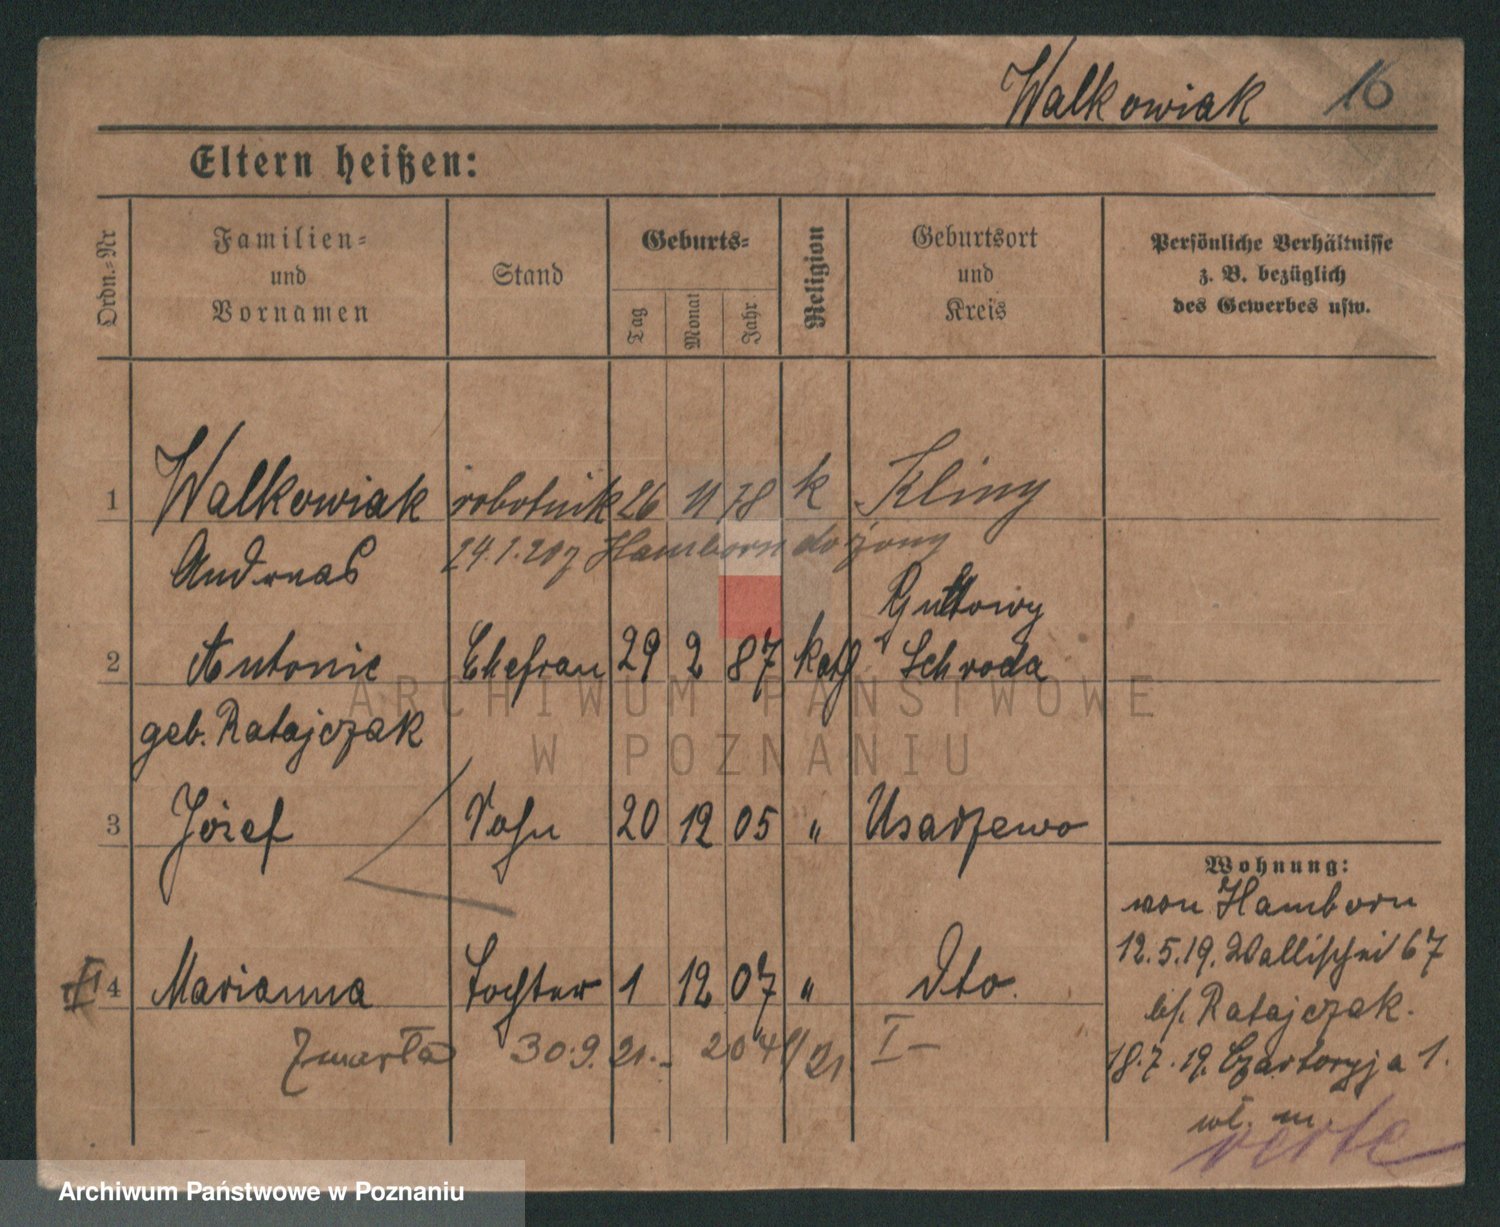 Walkowiak 16
Eltern heißen:
Ordn.-Nr
Familien- und Vornamen
Stand
Geburts-
Tag
Monat
Jahr
Religion
Geburtsort und Kreis
Persönliche Verhältnisse
z. B. bezüglich
des Gewerbes usw.
1 Walkowiak robotnik 26 11 78 k Kliny
Andreas 24.1.20 z Hamborn do żony
Guttowy
2 Antonie Ehefrau 29 2 87 kath Schroda
geb. Ratajczak
3 Józef Sohn 20 12 05 " Usarzewo
Wohnung:
von Hamborn
12.5.19. Wallischei 67
bf. Ratajczak.
4 Marianna Tochter 1 12 07 " Dto.
Zmarła 30.9.21.- 2041/21 I-
18.7.19. Czartoryja 1.
wł. m.
verte
ARCHIWUM PAŃSTWOWE
W POZNANIU
Archiwum Państwowe w Poznaniu